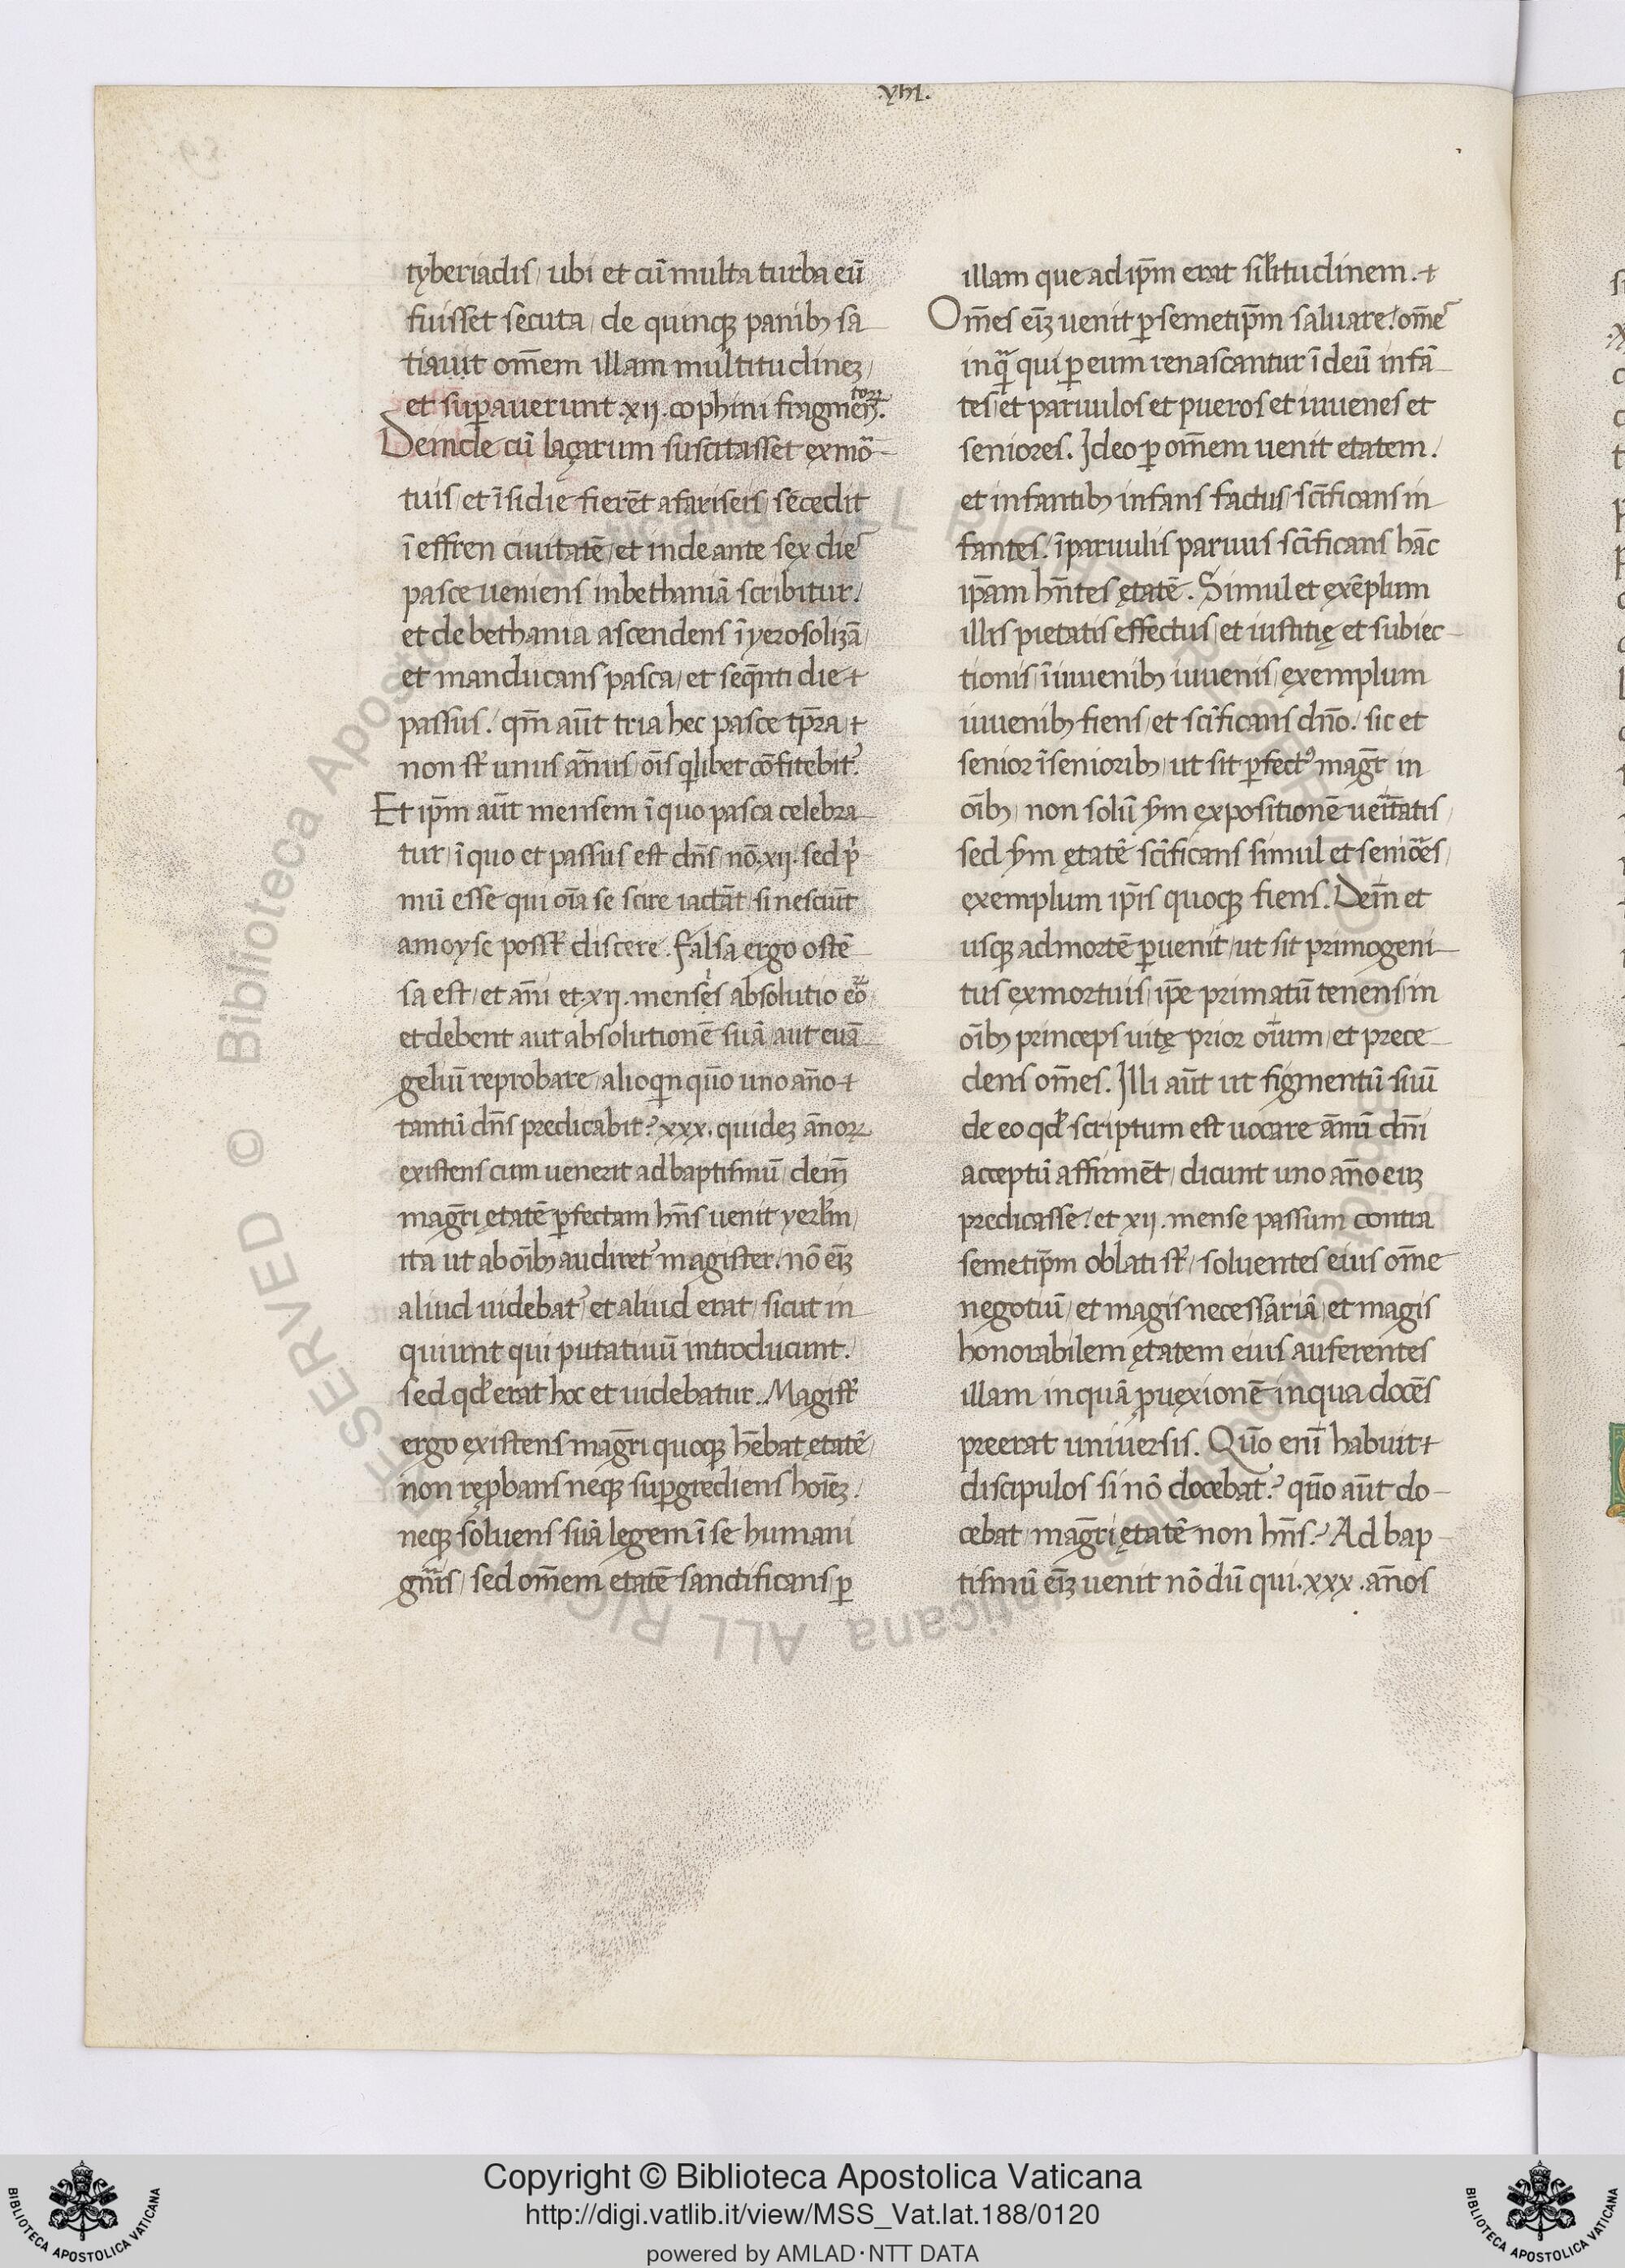 .xhi.
tyberiadis / ubi et cū multa turba eū
fuisset secuta / de quinqꝫ panibꝫ sa
tiauit om̄em illam multitudineꝫ /
et sup̱auerunt .xii. cophini fragmentoꝝ.
Deinde cū laçarum suscitasset ex moꝛ
tuis / et īsidie fierēt a fariseis / secedit
ī effren ciuitatē / et inde ante sex dies
pasce ueniens in bethaniā scribitur /
et de bethania ascendens ī yerosolimā /
et manducans pasca / et seq̄nti die ⁊
passus. qm̄ aūt tria hec pasce tp̄ra ⁊
non st̄ unus ān̄us / oīs q̇libet cōfitebit᷑.
Et ip̄m aūt mensem ī quo pasca celebra
tur / ī quo et passus est dn̄s / nō .xii. sed ṗ
mū esse qui oīa se scire iactāt / si nesciūt
a moyse posst̄ discere. falsa ergo ostē
sa est / et an̄i et .xii. menses absolutio eoꝝ /
et debent aut absolutionē suā / aut euā
geliū reprobare / alioq̇n quō uno an̄o ⁊
tantū dn̄s predicabit? xxx. quideꝫ an̄oꝝ
existens cum uenerit ad baptismū / dein̄
maḡri ętatē ꝑfectam hn̄s uenit yerl̄m /
ita ut ab oībꝫ audiret᷑ magister. nō eīꝫ
aliud uidebat᷑ et aliud erat / sicut in
quiunt qui putatiuū introducunt.
sed qd̄ erat hoc et uidebatur. Magist̄
ergo existens maḡri quoqꝫ hēbat ętatē /
non rep̱bans neqꝫ sup̱grediens hoīeꝫ.
neqꝫ soluens suā legem ī se humani
gn̄is / sed om̄em etatē sanctificans / ꝑ
illam que ad ip̄m erat sil̄itudinem. ⁊
Om̄es eīꝫ uenit ꝑ semetip̄m saluare. om̄es
inquā qui ꝑ eum renascantur ī deū infā
tes / et paruulos et pueros et iuuenes et
seniores. Ideo ꝑ om̄em uenit etatem.
et infantibꝫ infans factus / sc̄ificans in
fantes. ī paruulis paruus sc̄ificans hāc
ip̄am hn̄tes ętatē. Simul et exēplum
illis pietatis effectus / et iustitię et subiec
tionis / ī iuuenibꝫ iuuenis / exemplum
iuuenibꝫ fiens / et sc̄ificans dn̄o. sic et
senior ī senioribꝫ / ut sit ꝑfectꝰ maḡr in
oībꝫ / non solū ẜm expositionē ueritatis /
sed ẜm ętatē sc̄ificans simul et seniores /
exemplum ip̄is quoqꝫ fiens. Dein̄ et
usqꝫ ad mortē ꝑuenit / ut sit primogeni
tus ex mortuis / ip̄e primatū tenens in
oībꝫ princeps uitę prior oīum / et prece
dens om̄es. Illi aūt ut figmentū suū
de eo qd̄ scriptum est uocare an̄ū dn̄i
acceptū affirmēt / dicunt uno an̄o euꝫ
predicasse. et xii. mense passum contra
semetip̄m oblati st̄ / soluentes eius om̄e
negotiū / et magis necessariā / et magis
honorabilem ętatem eius auferentes
illam inquā ꝓuexionē in qua docēs
preerat uniuersis. Quō eni habuit ⁊
discipulos si nō docebat? quō aūt do
cebat / maḡri ętatē non hn̄s? Ad bap
tismū eīꝫ uenit nōdū qui .xxx. an̄os
Biblioteca Apostolica Vaticana ALL RIGHTS RESERVED ©
Copyright © Biblioteca Apostolica Vaticana
http://digi.vatlib.it/view/MSS_Vat.lat.188/0120
powered by AMLAD·NTT DATA
BIBLIOTECA APOSTOLICA VATICANA
BIBLIOTECA APOSTOLICA VATICANA